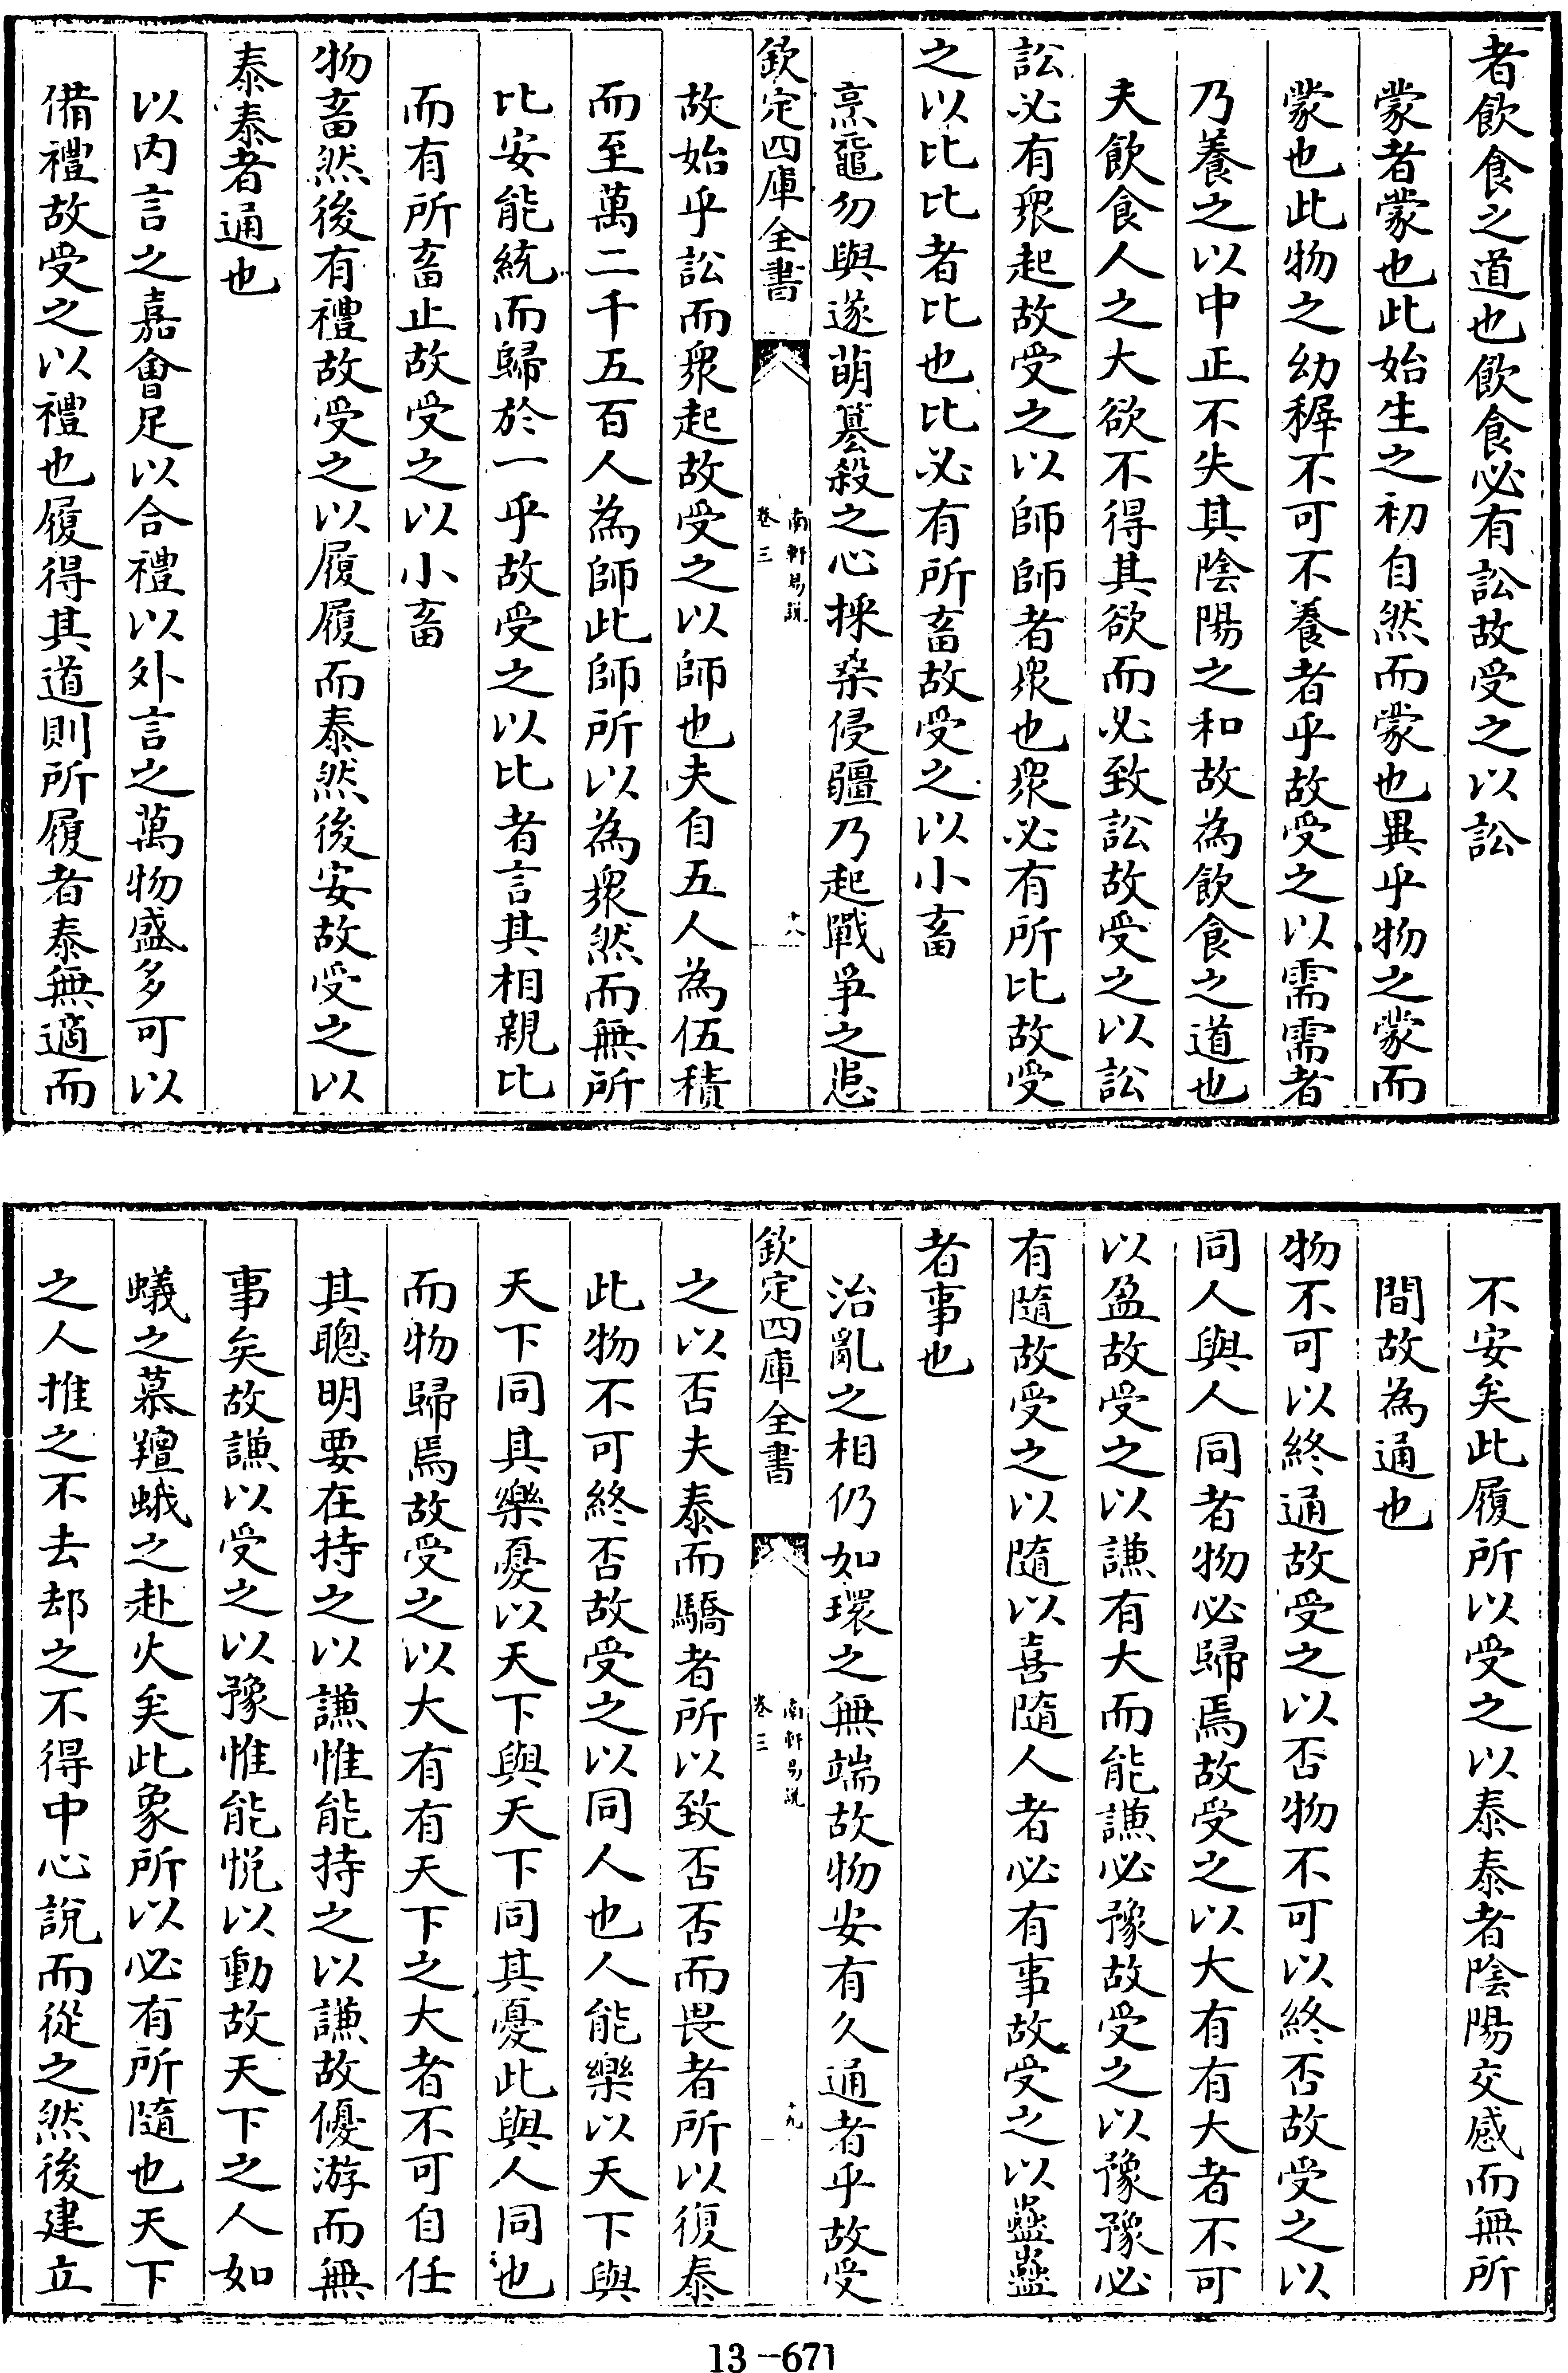 者飲食之道也飲食必有訟故受之以訟
蒙者蒙也此始生之初自然而蒙也異乎物之蒙而
蒙也此物之幼穉不可不養者乎故受之以需需者
乃養之以中正不失其陰陽之和故為飲食之道也
夫飲食人之大欲不得其欲而必致訟故受之以訟
訟必有衆起故受之以師師者衆也衆必有所比故受
之以比比者比也比必有所畜故受之以小畜
烹黿勿與遂萌簒殺之心採桑侵疆乃起戰爭之患
欽定四庫全書
南軒易說
卷三
十八
故始乎訟而衆起故受之以師也夫自五人為伍積
而至萬二千五百人為師此師所以為衆然而無所
比安能統而歸於一乎故受之以比者言其相親比
而有所畜止故受之以小畜
物畜然後有禮故受之以履履而泰然後安故受之以
泰泰者通也
以内言之嘉會足以合禮以外言之萬物盛多可以
備禮故受之以禮也履得其道則所履者泰無適而
不安矣此履所以受之以泰泰者陰陽交感而無所
間故為通也
物不可以終通故受之以否物不可以終否故受之以
同人與人同者物必歸焉故受之以大有有大者不可
以盈故受之以謙有大而能謙必豫故受之以豫豫必
有隨故受之以隨以喜隨人者必有事故受之以蠱蠱
者事也
治亂之相仍如環之無端故物安有久通者乎故受
欽定四庫全書
南軒易說
卷三
十九
之以否夫泰而驕者所以致否否而畏者所以復泰
此物不可終否故受之以同人也人能樂以天下與
天下同其樂憂以天下與天下同其憂此與人同也
而物歸焉故受之以大有有天下之大者不可自任
其聰明要在持之以謙惟能持之以謙故優游而無
事矣故謙以受之以豫惟能悦以動故天下之人如
蟻之慕羶蛾之赴火矣此象所以必有所隨也天下
之人推之不去却之不得中心說而從之然後建立
13-671